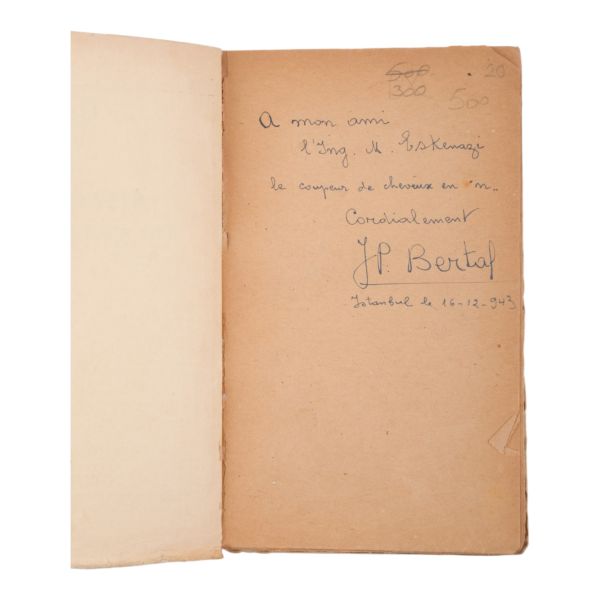 500 20
300
500
A mon ami
l'Ing. M. Eskenazi
le coupeur de cheveux en "n"..
Cordialement
JP. Bertal
Istanbul le 16-12-943